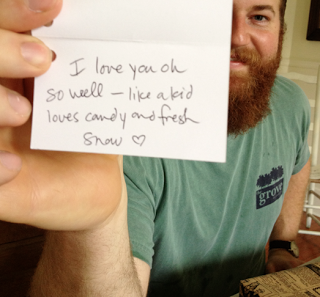 I love you oh
so well – like a kid
loves candy and fresh
snow ♡
grove